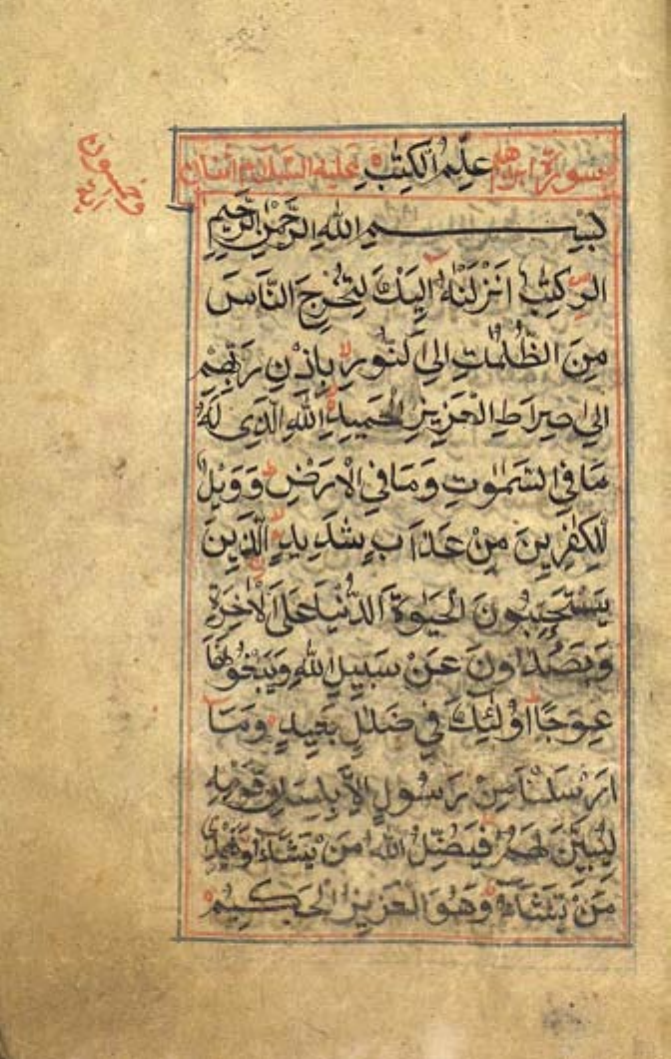 سورة ابرهيم علم الكتب عليه السلام اثنان
وخمسون اية
بسم الله الرحمن الرحيم
الر كِتٰبٌ اَنْزَلْنٰهُ اِلَيْكَ لِتُخْرِجَ النَّاسَ
مِنَ الظُّلُمٰتِ اِلَى النُّورِ بِاِذْنِ رَبِّهِمْ
اِلٰى صِرَاطِ الْعَزِيزِ الْحَمِيدِ اللّٰهِ الَّذِى لَهُ
مَا فِى السَّمٰوٰتِ وَمَا فِى الْاَرْضِ وَوَيْلٌ
لِلْكٰفِرِينَ مِنْ عَذَابٍ شَدِيدٍ الَّذِينَ
يَسْتَحِبُّونَ الْحَيٰوةَ الدُّنْيَا عَلَى الْاٰخِرَةِ
وَيَصُدُّونَ عَنْ سَبِيلِ اللّٰهِ وَيَبْغُونَهَا
عِوَجًا اُولٰئِكَ فِى ضَلٰلٍ بَعِيدٍ وَمَا
اَرْسَلْنَا مِنْ رَسُولٍ اِلَّا بِلِسَانِ قَوْمِهِ
لِيُبَيِّنَ لَهُمْ فَيُضِلُّ اللّٰهُ مَنْ يَشَاءُ وَيَهْدِى
مَنْ يَشَاءُ وَهُوَ الْعَزِيزُ الْحَكِيمُ